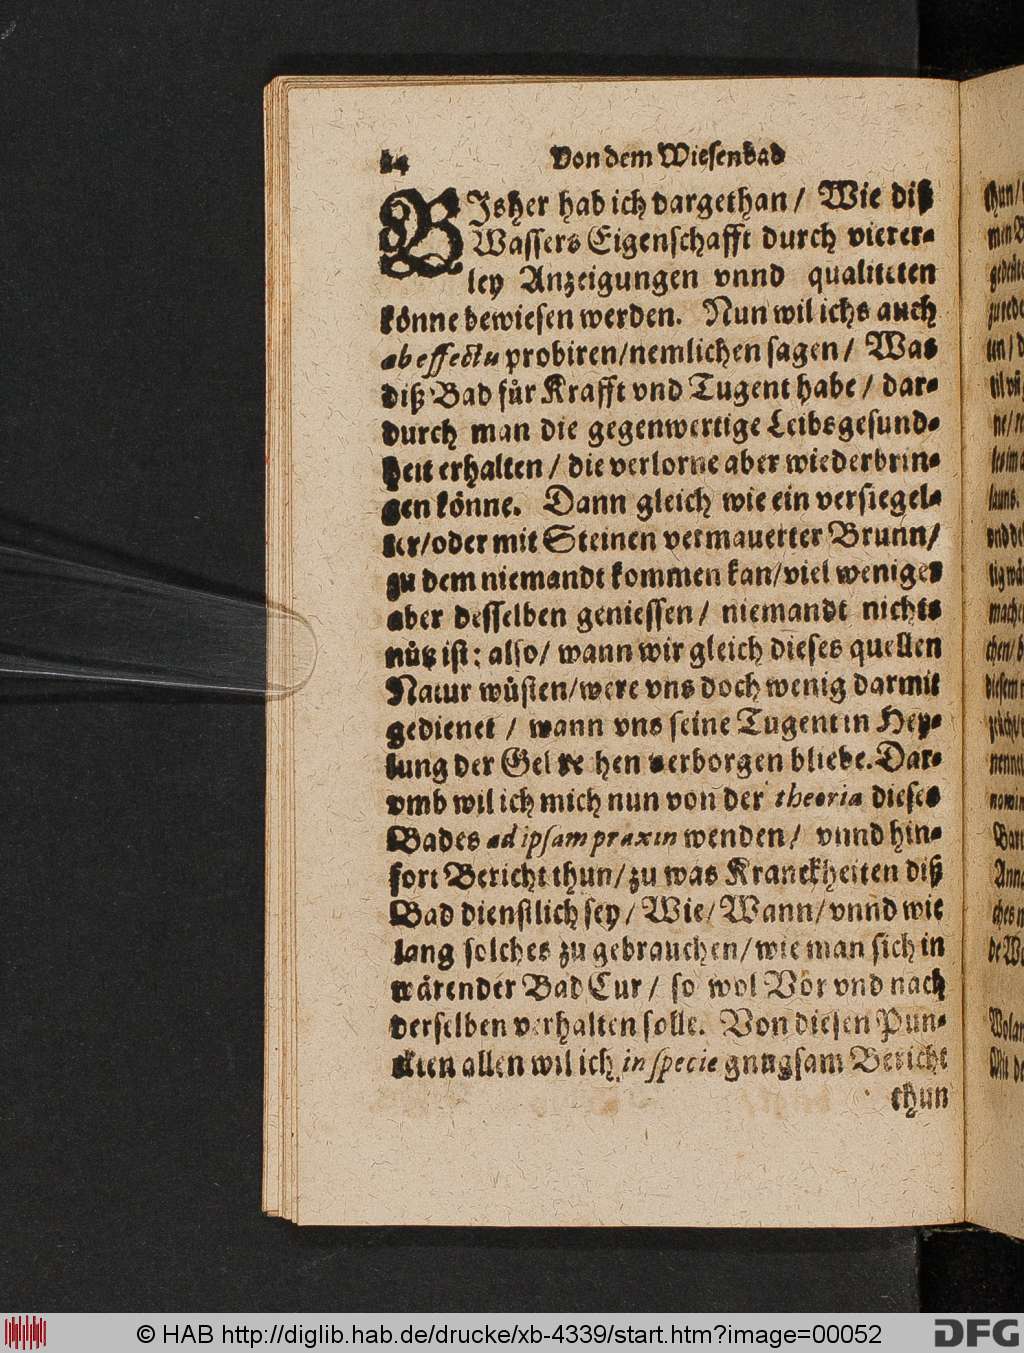 24 Von dem Wiesenbad
BIsher hab ich dargethan / Wie diß
Wassers Eigenschafft durch vierer-
ley Anzeigungen vnnd qualiteten
könne bewiesen werden. Nun wil ichs auch
ab effectu probiren/nemlichen sagen / Was
diß Bad für Krafft vnd Tugent habe / dar-
durch man die gegenwertige Leibsgesund-
heit erhalten / die verlorne aber wiederbrin-
gen könne. Dann gleich wie ein versiegel-
ter/oder mit Steinen vermauerter Brunn/
zu dem niemandt kommen kan/viel weniger
aber desselben geniessen / niemandt nichts
nütz ist: also/ wann wir gleich dieses quellen
Natur wüsten/were vns doch wenig darmit
gedienet / wann vns seine Tugent in Hey-
lung der verborgen bliebe. Dar-
vmb wil ich mich nun von der theoria dieses
Bades ad ipsam praxin wenden / vnnd hin-
fort Bericht thun/zu was Kranckheiten diß
Bad dienstlich sey / Wie/ Wann/vnnd wie
lang solches zu gebrauchen/wie man sich in
wärender Bad Cur / so wol Vor vnd nach
derselben verhalten solle. Von diesen Pun-
cten allen wil ich in specie gnugsam Bericht
thun
© HAB http://diglib.hab.de/drucke/xb-4339/start.htm?image=00052
DFG